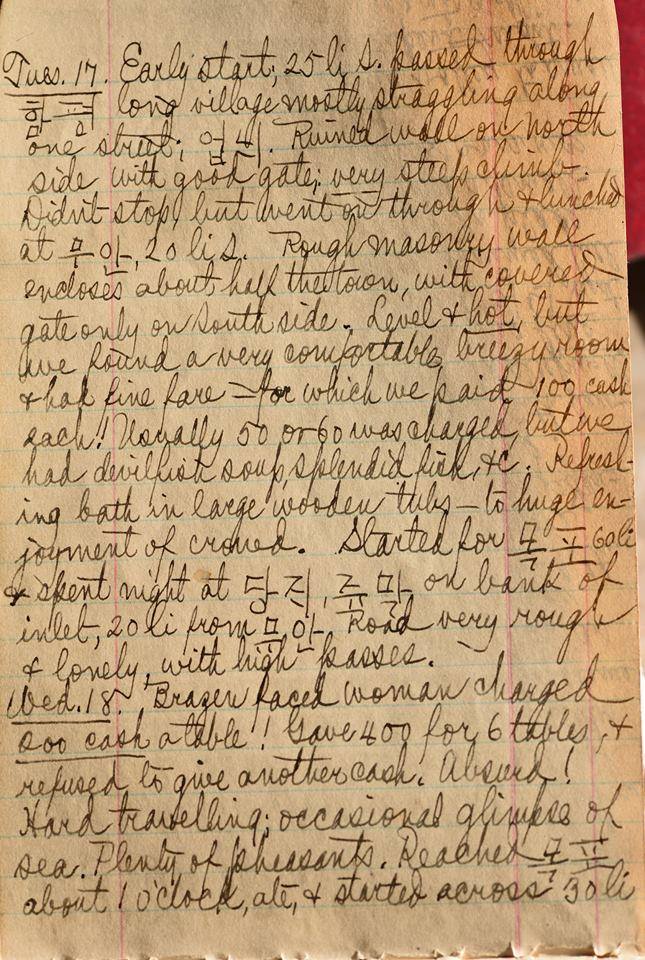 Tues. 17. Early start; 25 li S. passed through
함평 long village mostly straggling along
one street; 읍내. Ruined wall on north
side with good gate; very steep climb.
Didn't stop, but went on through & lunched
at 무안, 20 li S. Rough masonry wall
encloses about half the town, with covered
gate only on South side. Level & hot, but
we found a very comfortable, breezy room
& had fine fare – for which we paid 100 cash
each! Usually 50 or 60 was charged, but we
had devilfish soup, splendid fish, &c. Refresh-
ing bath in large wooden tubs – to huge en-
joyment of crowd. Started for 목포 60 li
& spent night at 당진, 주막 on bank of
inlet, 20 li from 무안. Road very rough
& lonely, with high passes.
Wed. 18. Brazen faced woman charged
200 cash a table! Gave 400 for 6 tables, &
refused to give another cash. Absurd!
Hard travelling; occasional glimpse of
sea. Plenty of pheasants. Reached 목포
about 1 o'clock, ate, & started across 30 li